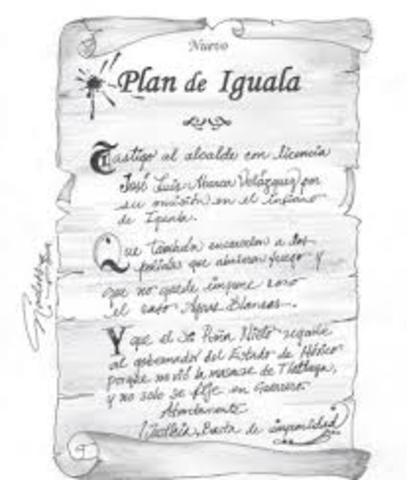 Nuevo
Plan de Iguala
Castigo al alcalde con licencia
José Luis Abarca Velázquez por
su omisión en el
de Iguala.
Que también encarcelen a los
que abrieron fuego y
que no quede impune como
el caso Aguas Blancas.
Y que el Sr. Peña Nieto regañe
al gobernador del Estado de México
porque no vió la masacre de Tlatlaya,
y no solo se fije en Guerrero.
Atentamente
Justicia, Basta de impunidad